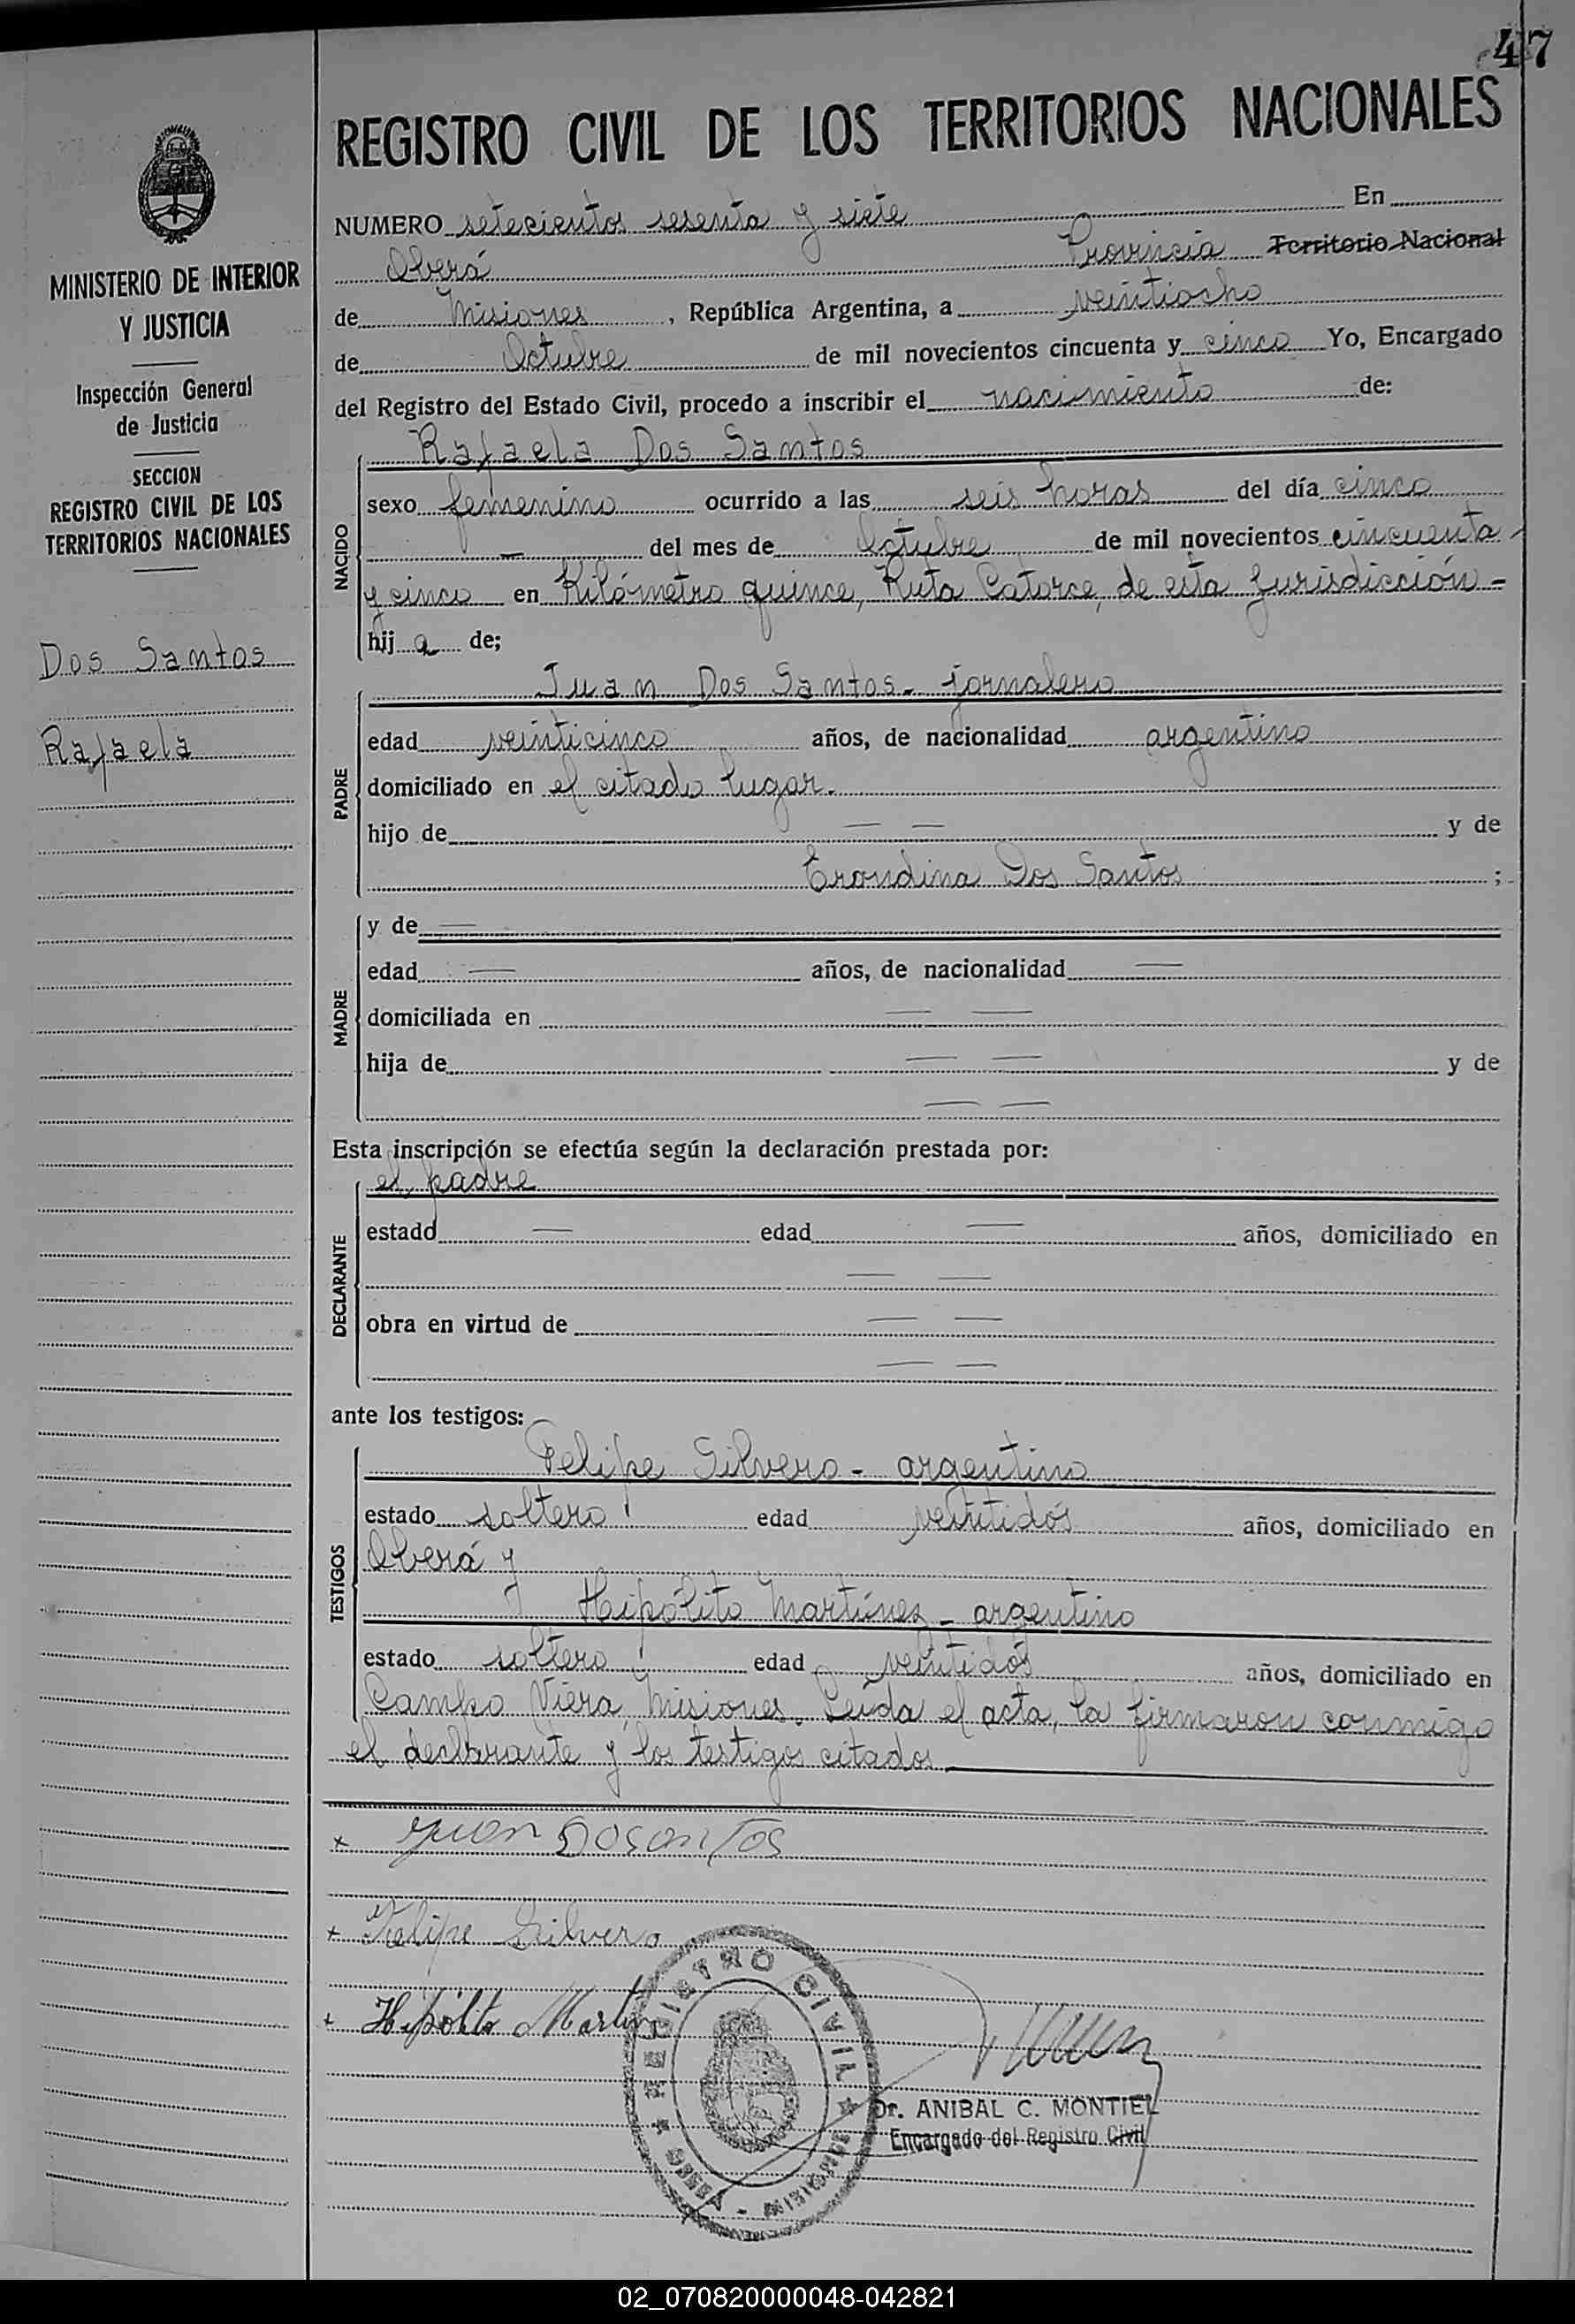 47
REGISTRO CIVIL DE LOS TERRITORIOS NACIONALES
MINISTERIO DE INTERIOR
Y JUSTICIA
Inspección General
de Justicia
SECCION
REGISTRO CIVIL DE LOS
TERRITORIOS NACIONALES
Dos Santos
Rafaela
NUMERO setecientos sesenta y siete En
Oberá Provincia Territorio Nacional
de Misiones, República Argentina, a veintiocho
de Octubre de mil novecientos cincuenta y cinco Yo, Encargado
del Registro del Estado Civil, procedo a inscribir el nacimiento de:
NACIDO
Rafaela Dos Santos
sexo femenino ocurrido a las seis horas del día cinco
— del mes de Octubre de mil novecientos cincuenta
y cinco en Kilómetro quince, Ruta Catorce, de esta Jurisdicción =
hij a de;
PADRE
Juan Dos Santos - jornalero
edad veinticinco años, de nacionalidad argentino
domiciliado en el citado lugar.
hijo de — — y de
Erondina Dos Santos ;
MADRE
y de —
edad — años, de nacionalidad —
domiciliada en — —
hija de — — y de
— —
Esta inscripción se efectúa según la declaración prestada por:
DECLARANTE
el padre
estado — edad — años, domiciliado en
— —
obra en virtud de — —
— —
ante los testigos:
TESTIGOS
Felipe Silvero - argentino
estado soltero edad veintidós años, domiciliado en
Oberá y
Hipólito Martínez - argentino
estado soltero edad veintidós años, domiciliado en
Campo Viera, Misiones. Leída el acta, la firmaron conmigo
el declarante y los testigos citados
+ Juan Dosantos
+ Felipe Silvero
+ Hipólito Martínez
REGISTRO CIVIL
OBERA - MISIONES
Dr. ANIBAL C. MONTIEL
Encargado del Registro Civil
02_070820000048-042821